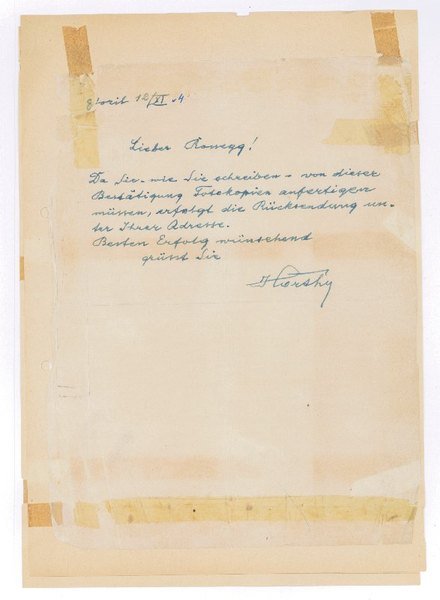 12/XI 54.
Lieber Konegg!
Da Sie – wie Sie schreiben – von dieser
Bestätigung Fotokopien anfertigen
müssen, erfolgt die Rücksendung un-
ter Ihrer Adresse.
Besten Erfolg wünschend
grüsst Sie
Horthy